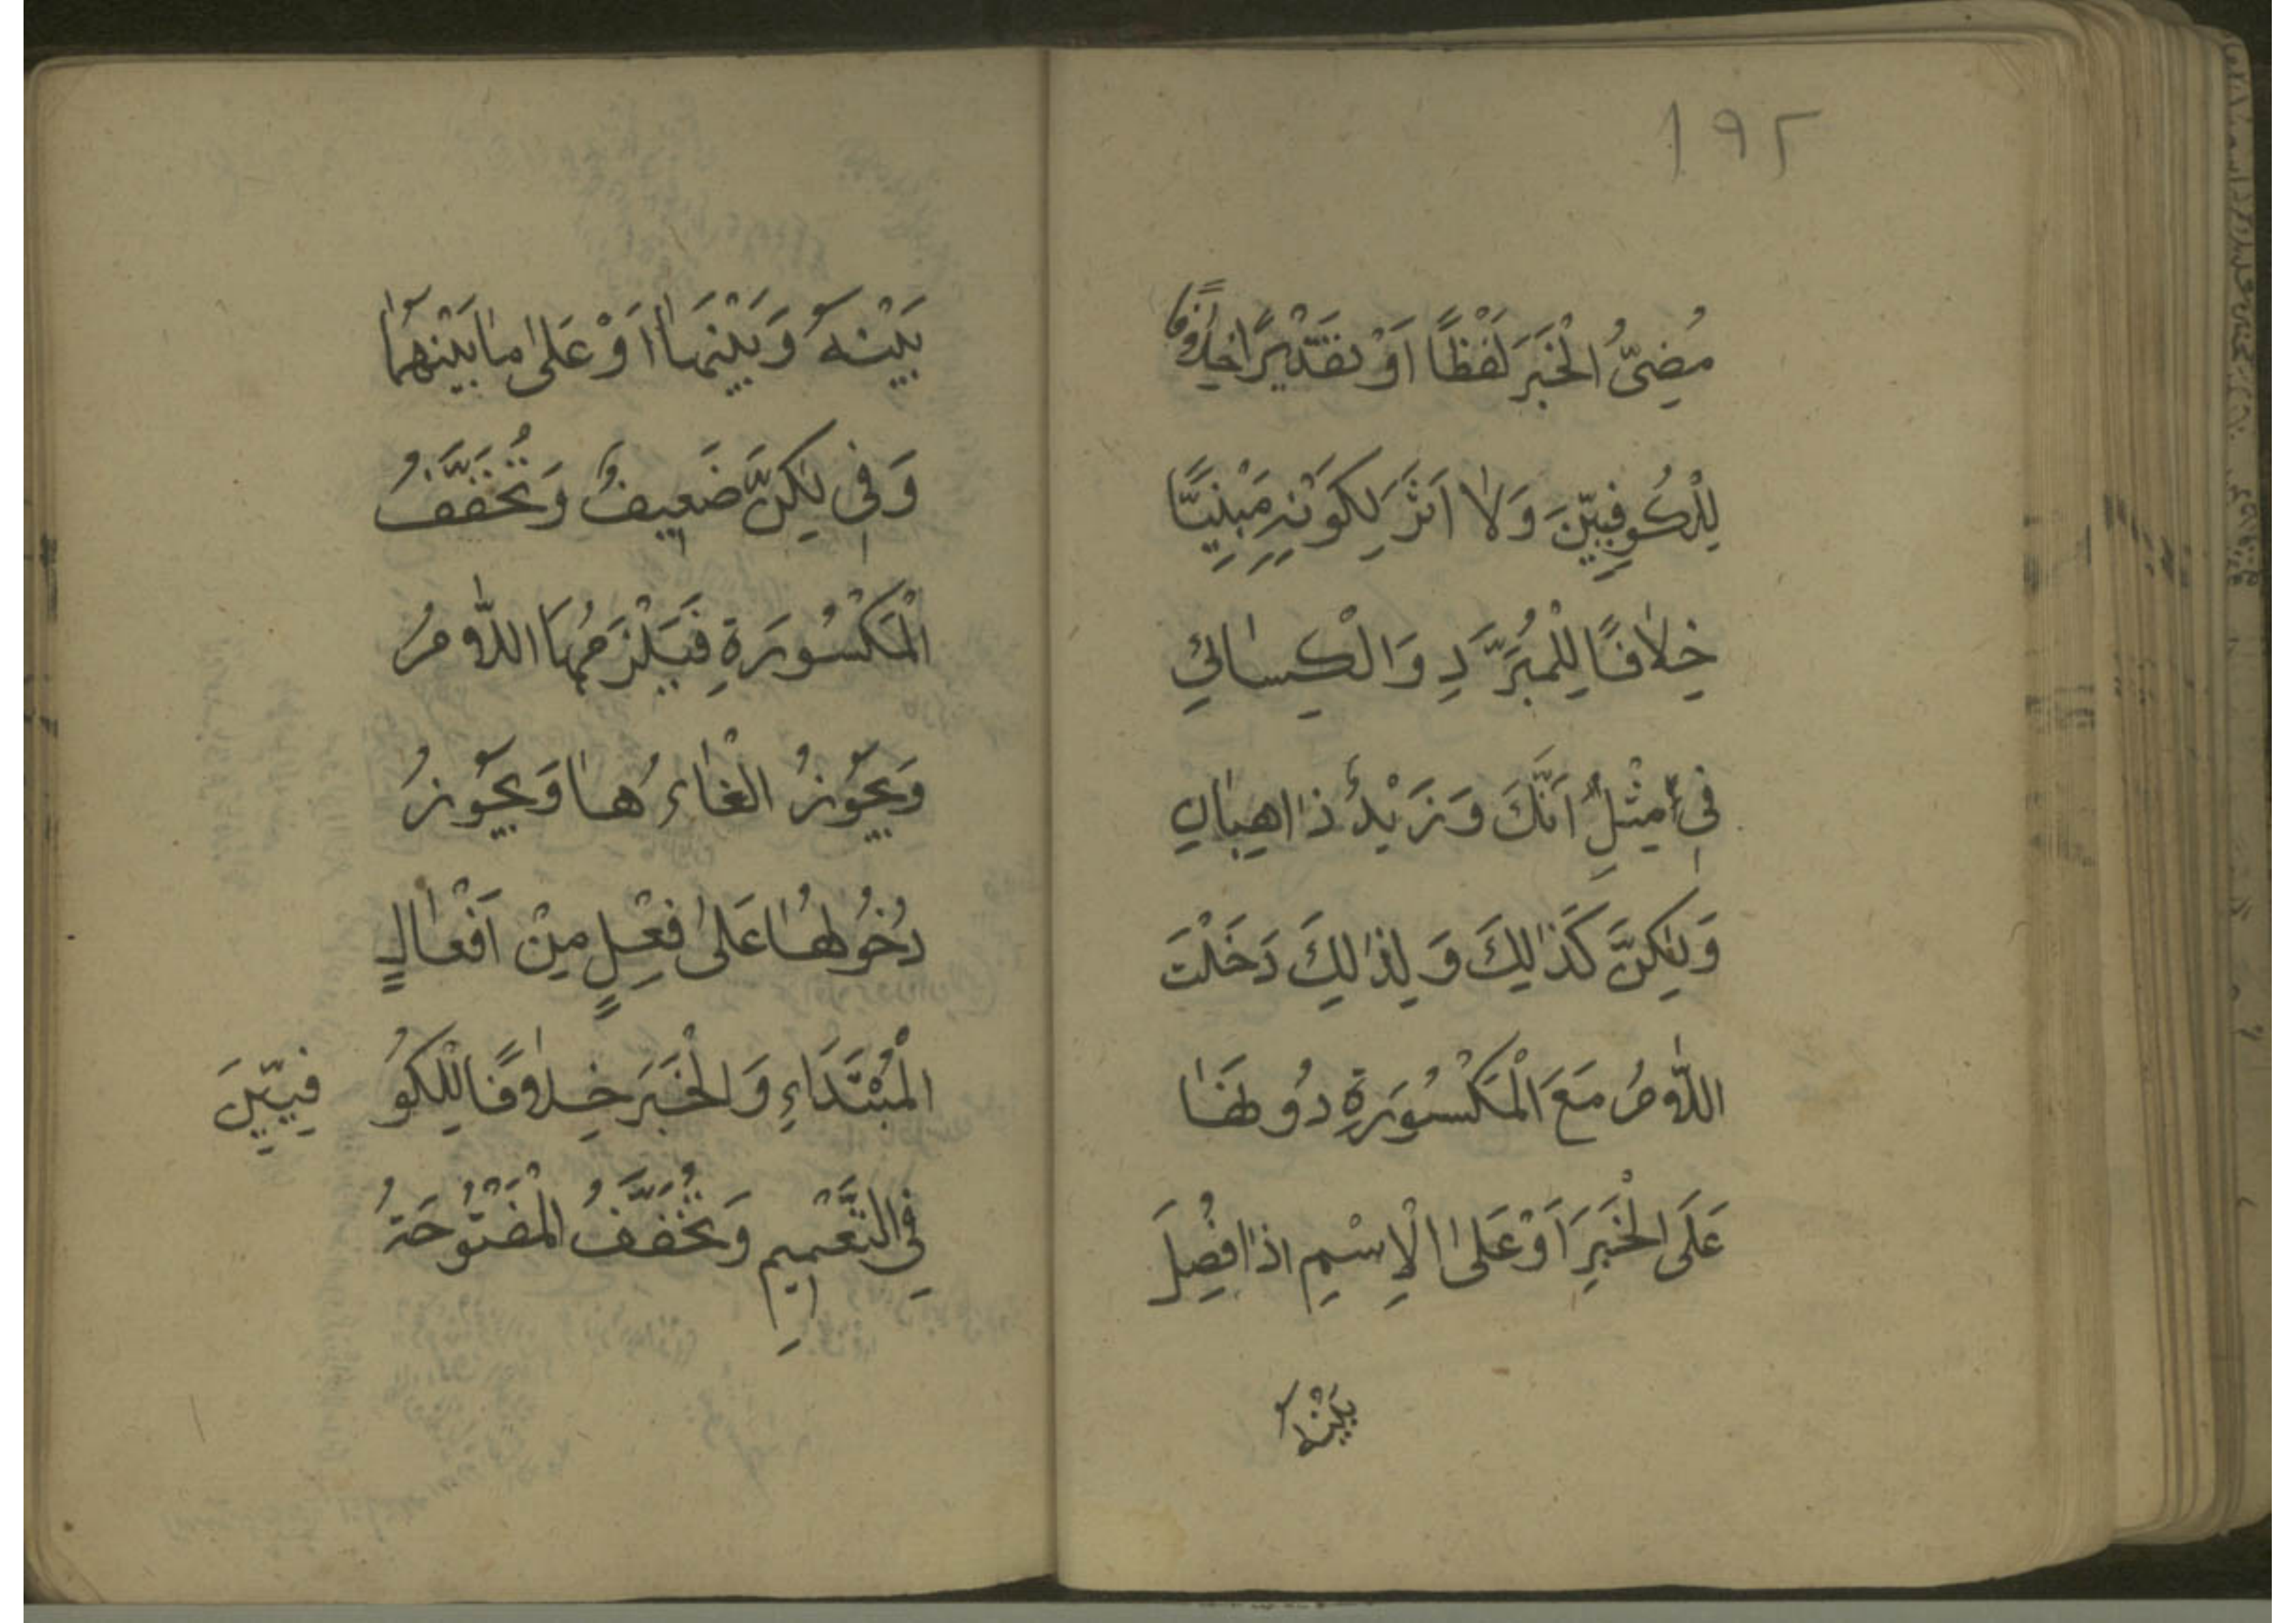 ١٩٢
مُضِىُّ الْخَبَرِ لَفْظًا اَوْ تَقْدِيْرًا خِلَافًا
لِلْكُوفِيِّيْنَ وَلَا اَثَرَ لِكَوْنِهِ مَبْنِيًّا
خِلَافًا لِلْمُبَرَّدِ وَالْكِسَائِيِّ
فِي مِثْلِ اَنَّكَ وَزَيْدٌ ذَاهِبَانِ
وَلٰكِنَّ كَذٰلِكَ وَلِذٰلِكَ دَخَلَتْ
اللَّامُ مَعَ الْمَكْسُوْرَةِ دُوْنَهَا
عَلَى الْخَبَرِ اَوْ عَلَى الْاِسْمِ اِذَا فُصِلَ
بَيْنَهُ
بَيْنَهُ وَبَيْنَهَا اَوْ عَلٰى مَا بَيْنَهُمَا
وَفِي لٰكِنَّ ضَعِيفٌ وَتُخَفَّفُ
الْمَكْسُوْرَةِ فَيَلْزَمُهَا اللَّامُ
وَيَجُوْزُ الْغَاءُهَا وَيَجُوْزُ
دُخُوْلُهَا عَلٰى فِعْلٍ مِنْ اَفْعَالٍ
الْمُبْتَدَاءِ وَالْخَبَرِ خِلَافًا لِلْكُوْفِيِّيْنَ
فِي التَّعْمِيمِ وَتُخَفَّفُ الْمَفْتُوْحَةُ